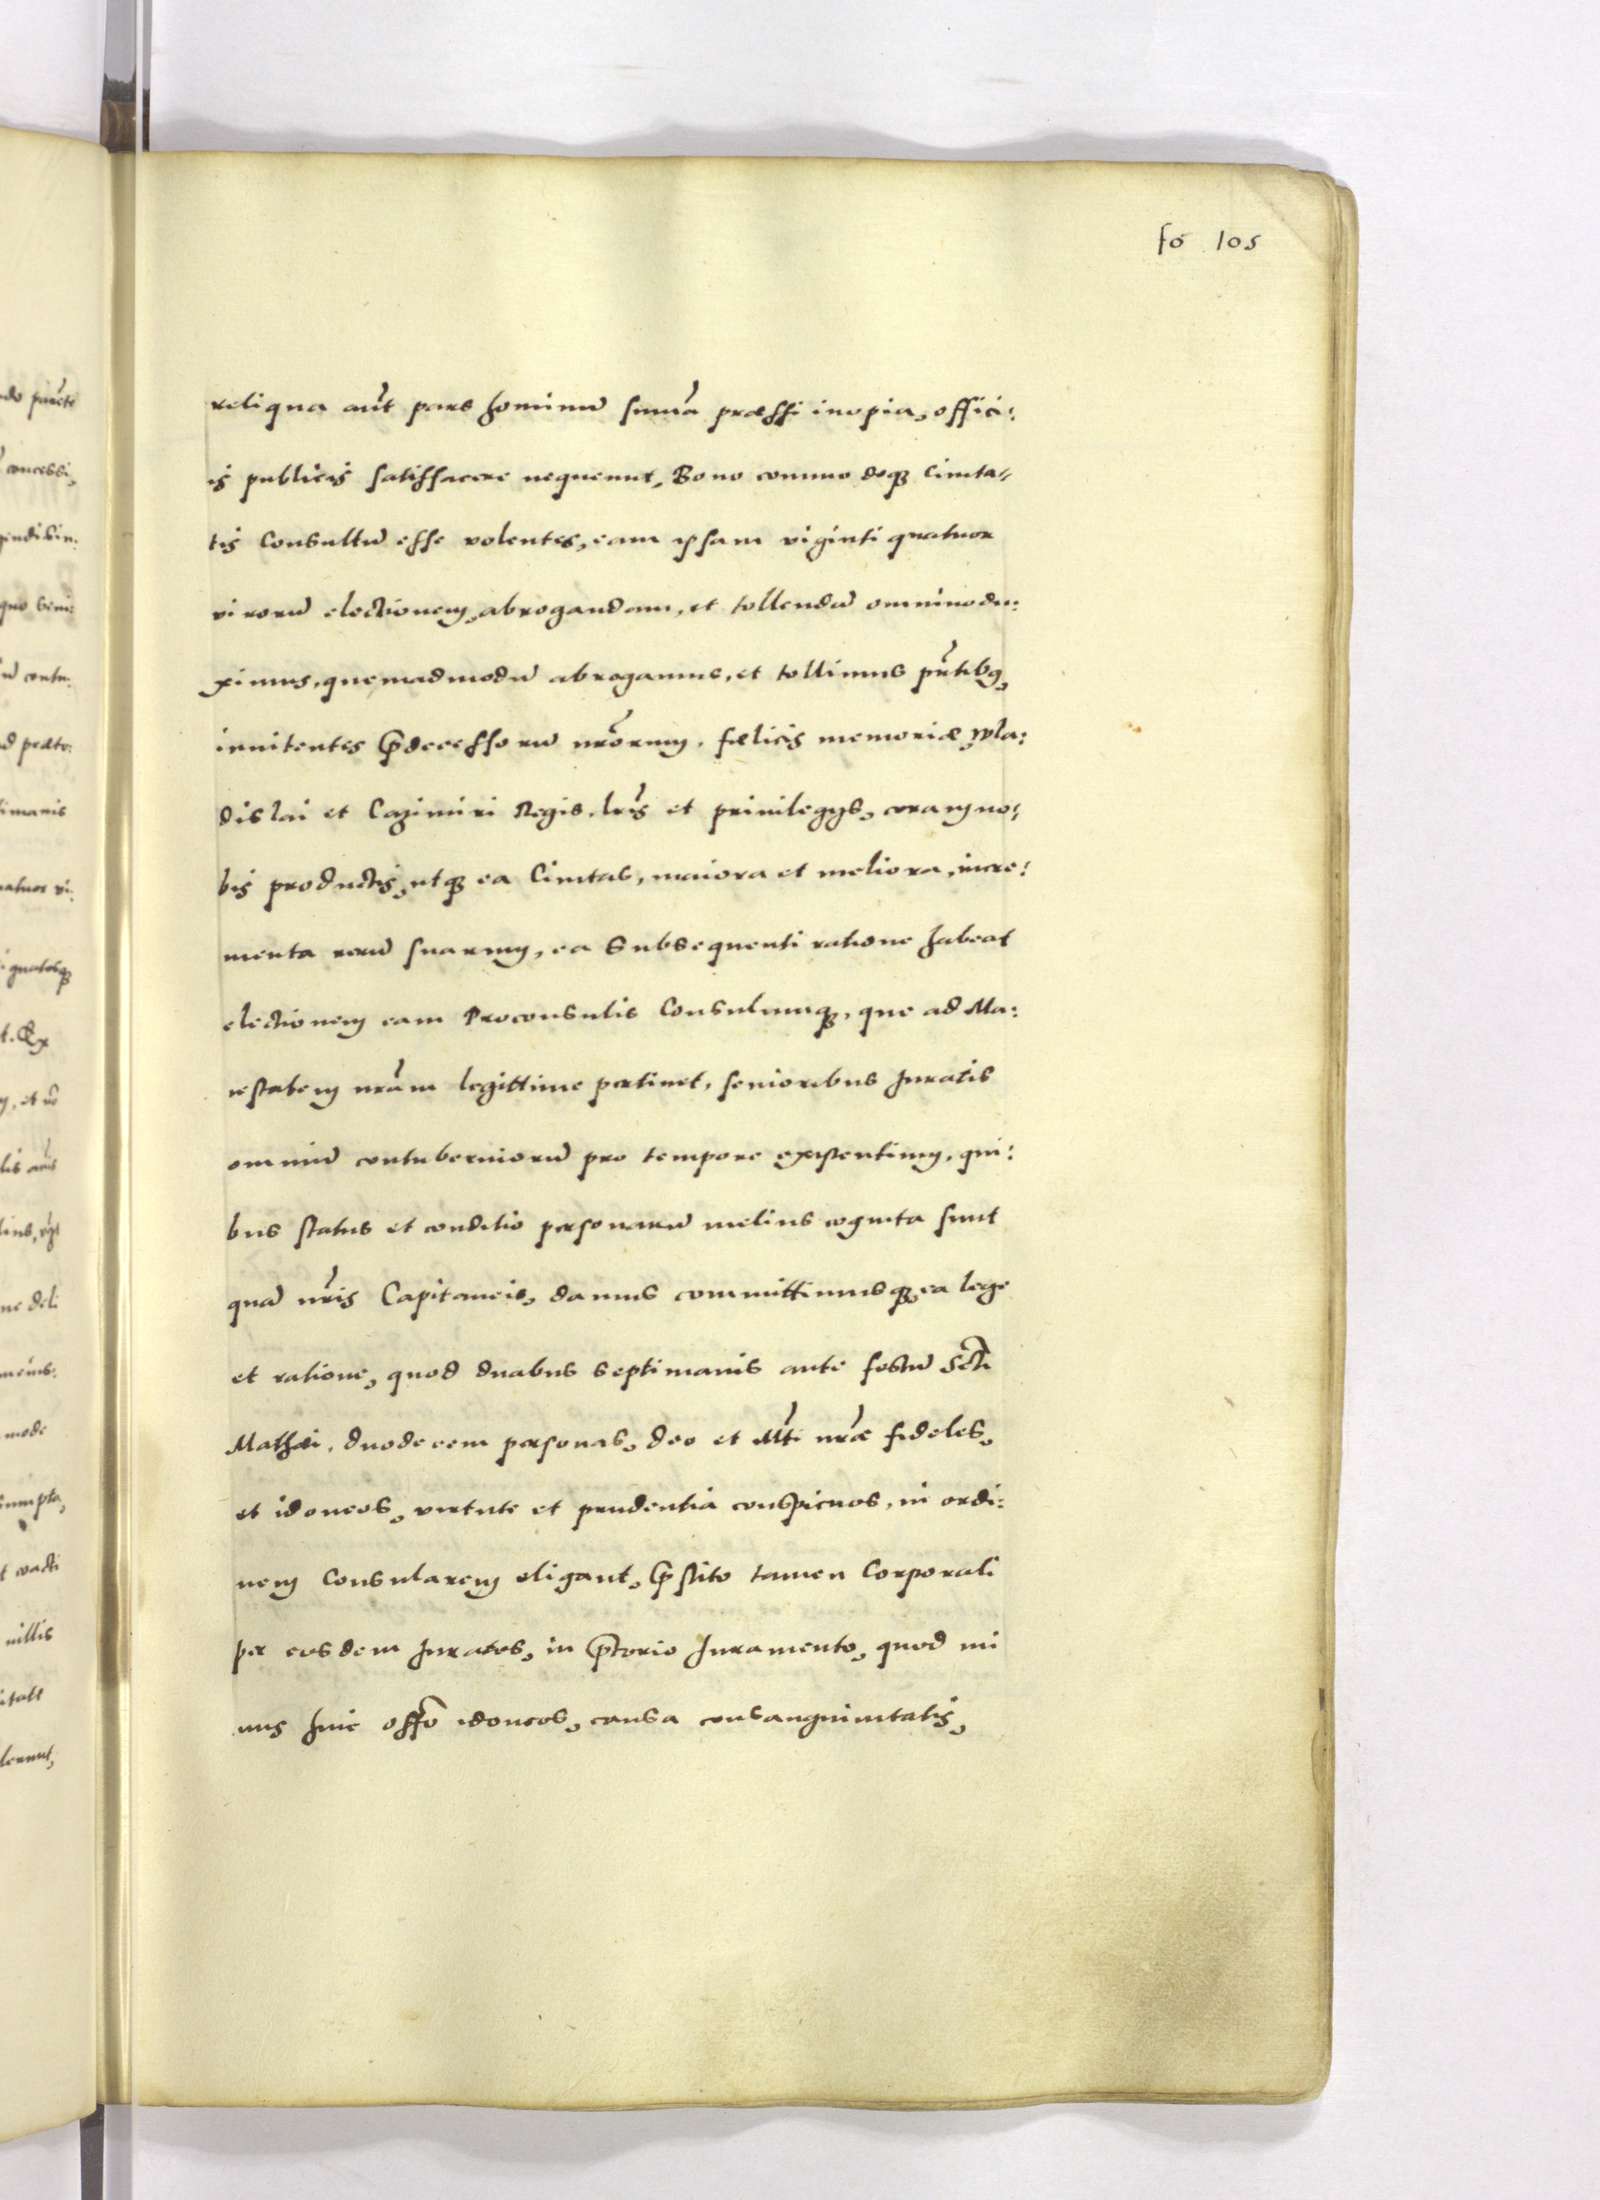 fo 105
reliqua aũt pars hominũ summa præssi inopia, offici:
is publicis satisfacere nequeunt, Bono commodoq3 Ciuita=
tis Consultũ esse volentes, eam ipsam viginti quatuor
virorũ electionem, abrogandam, et tollendã omnino du:
ximus, quemadmodũ abrogamus, et tollimus p̃ntib9,
innitentes p̃decessorũ nr̃orum, fælicis memoriæ, Wla:
dislai et Cazimiri Regis, lr̃is et priuilegijs, coram no=
bis productis, utq3 ea Ciuitas, maiora et meliora, incre:
menta rerũ suarum, ea Subsequenti ratione habeat
electionem eam Proconsulis Consulumq3, que ad Ma:
iestatem nr̃am legittime pertinet, senioribus Juratis
omniũ contuberniorũ pro tempore existentium, qui:
bus status et conditio personarũ melius cognita sunt
quã nr̃is Capitaneis, damus committimusq3, ea lege
et ratione, quod duabus septimanis ante festũ Scti
Mathæi, duodecem personas, deo et Mti nr̃æ fideles,
et idoneos, virtute et prudentia conspicuos, in ordi:
nem Consularem eligant, p̃stito tamen Corporali
per eosdem Juratos, in p̃torio Juramento, quod mi
nus huic offõ idoneos, causa consanguinitatis,
do
concessi,
quo beni:
contu:
d præto:
timanis
natuor vi:
ne deli
mode
sumpta,
t coacti
nillis